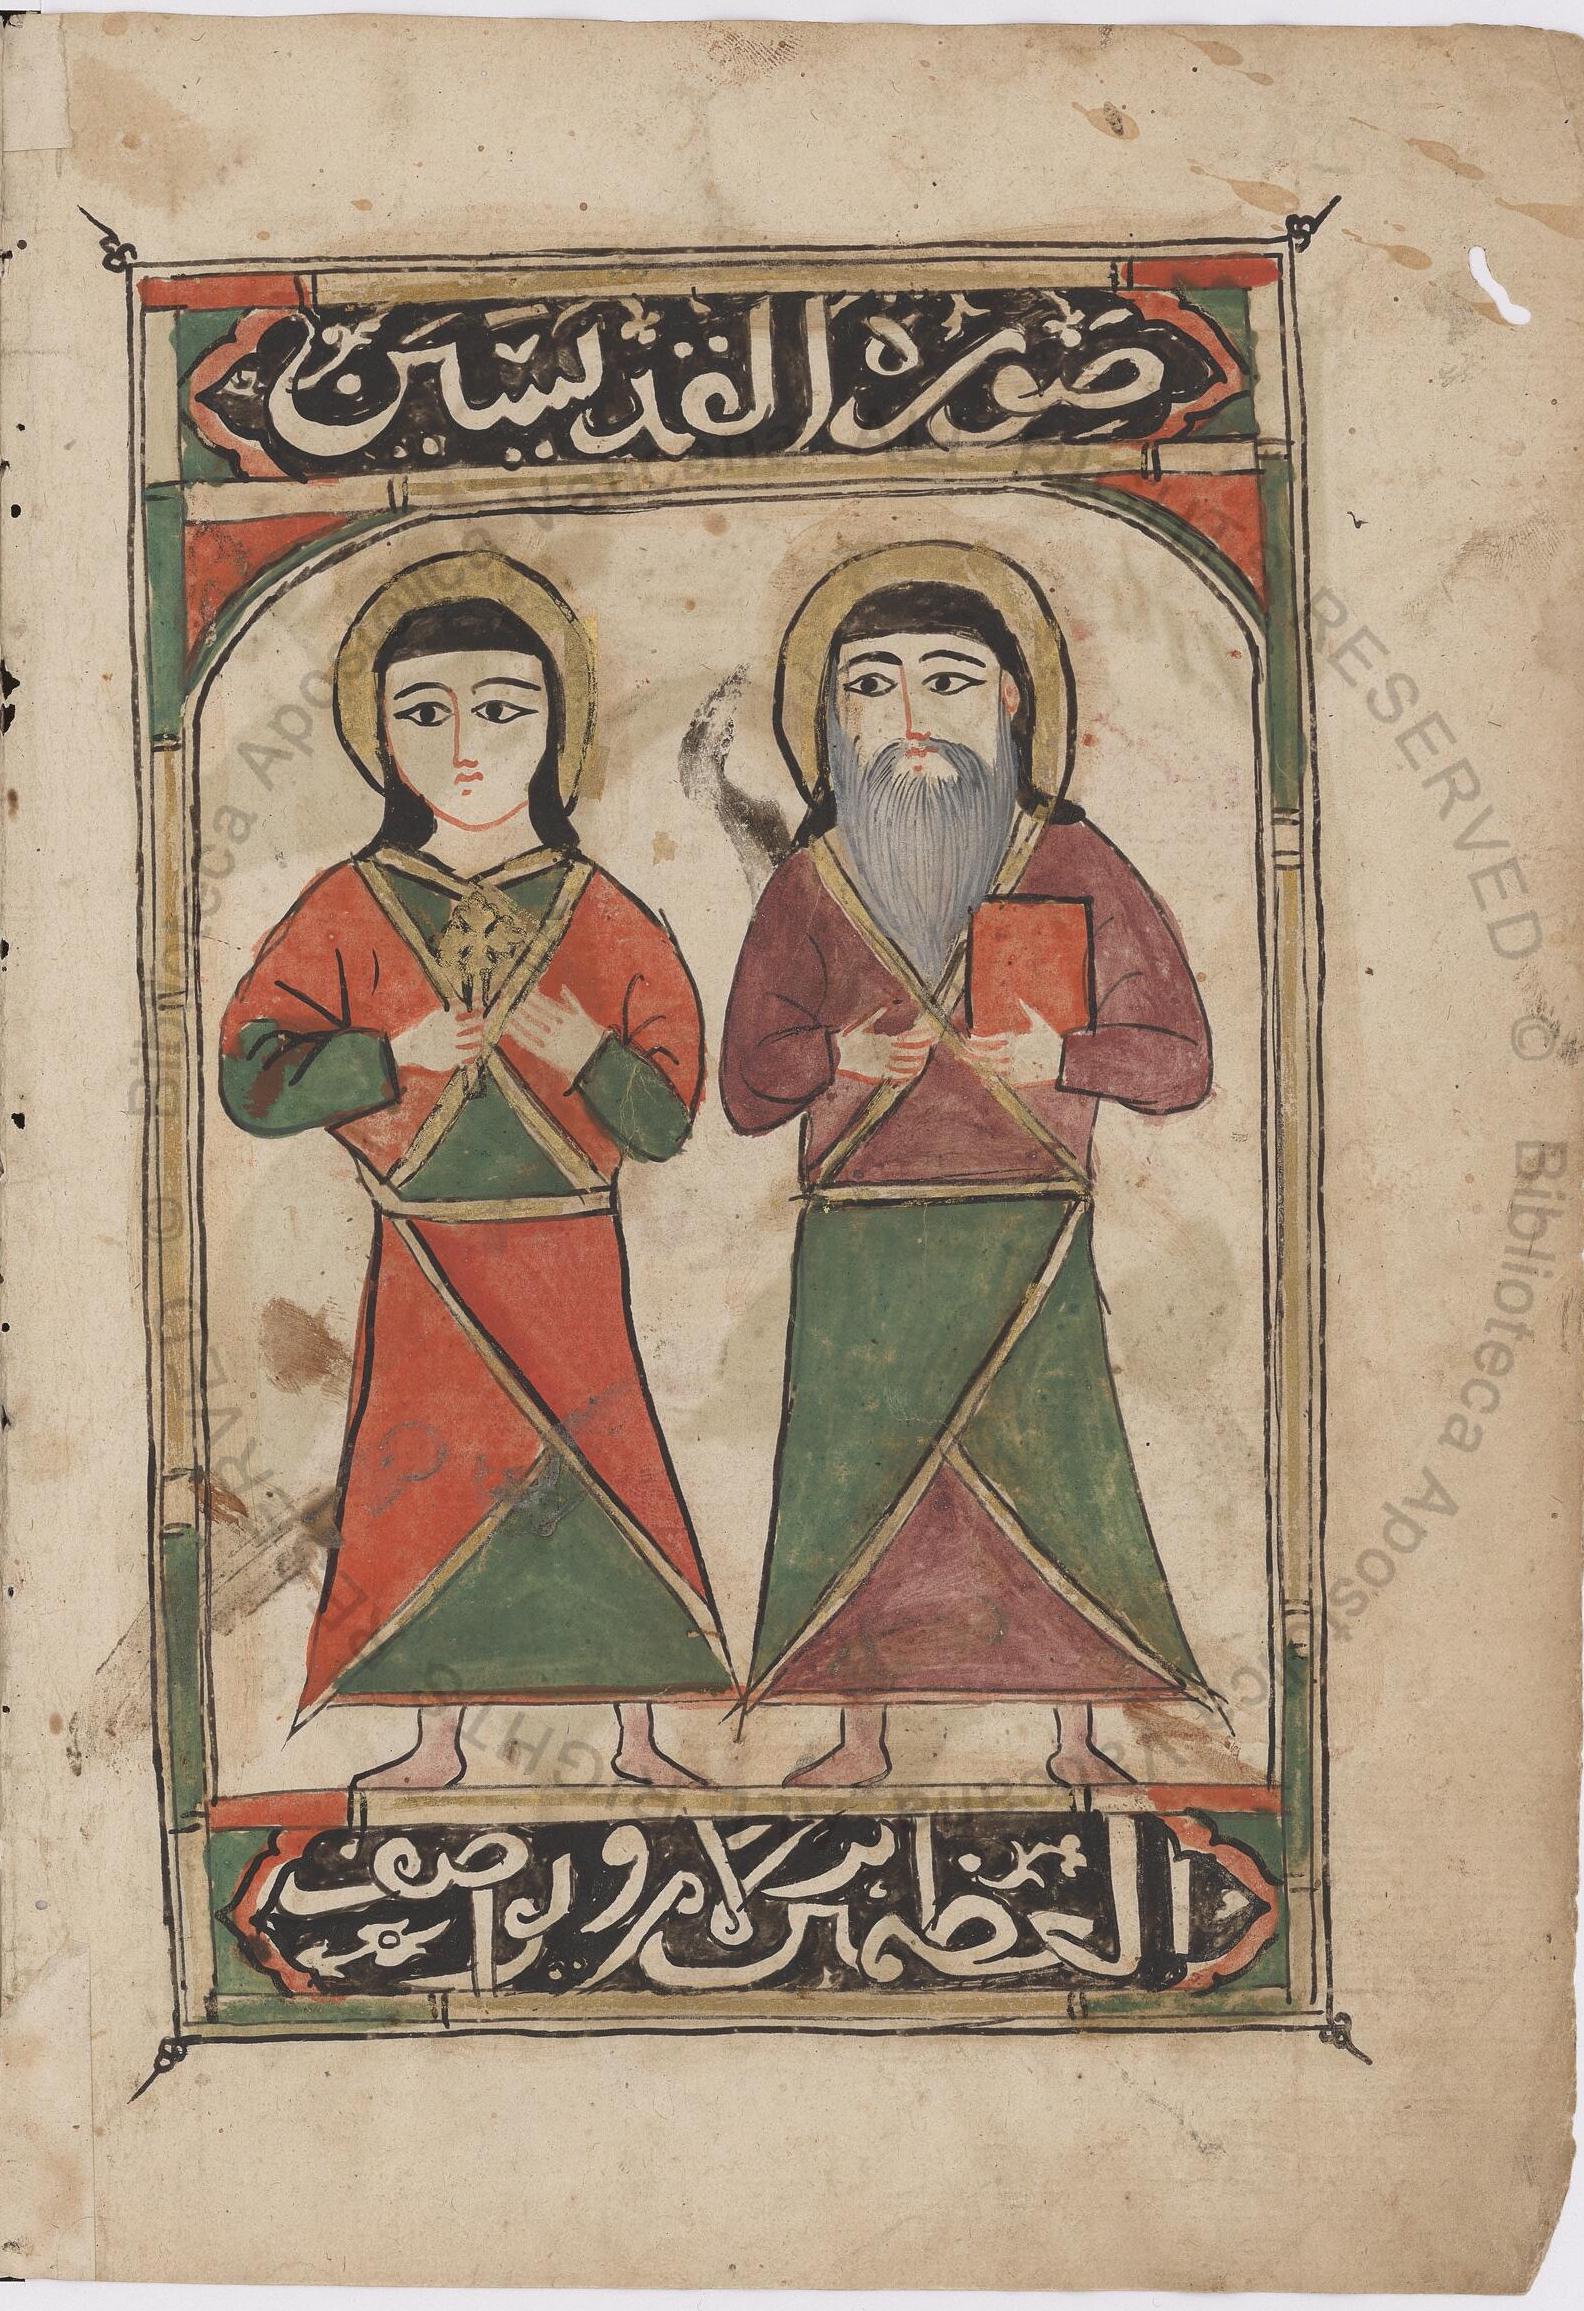 صوره القديسين
العظيمين برلام ويواصف
© Biblioteca Apostolica Vaticana ALL RIGHTS RESERVED © Biblioteca Apostolica Vaticana ALL RIGHTS RESERVED